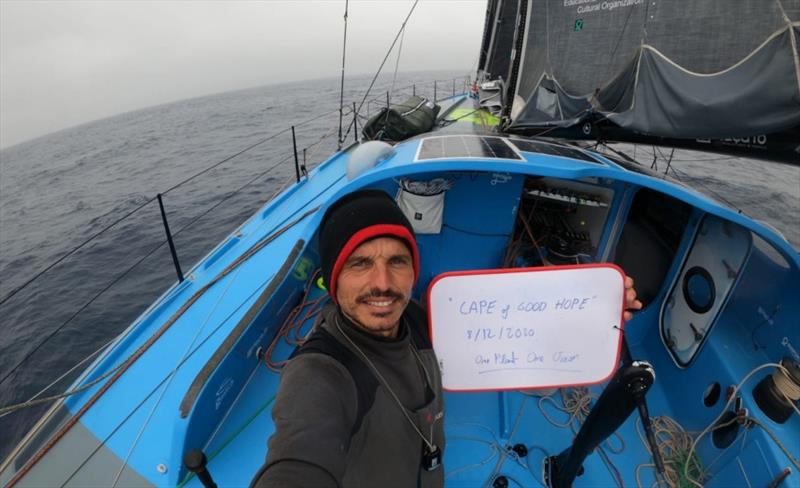 Educational
Cultural Organization
"CAPE of GOOD HOPE"
8/12/2020
One Planet One Ocean